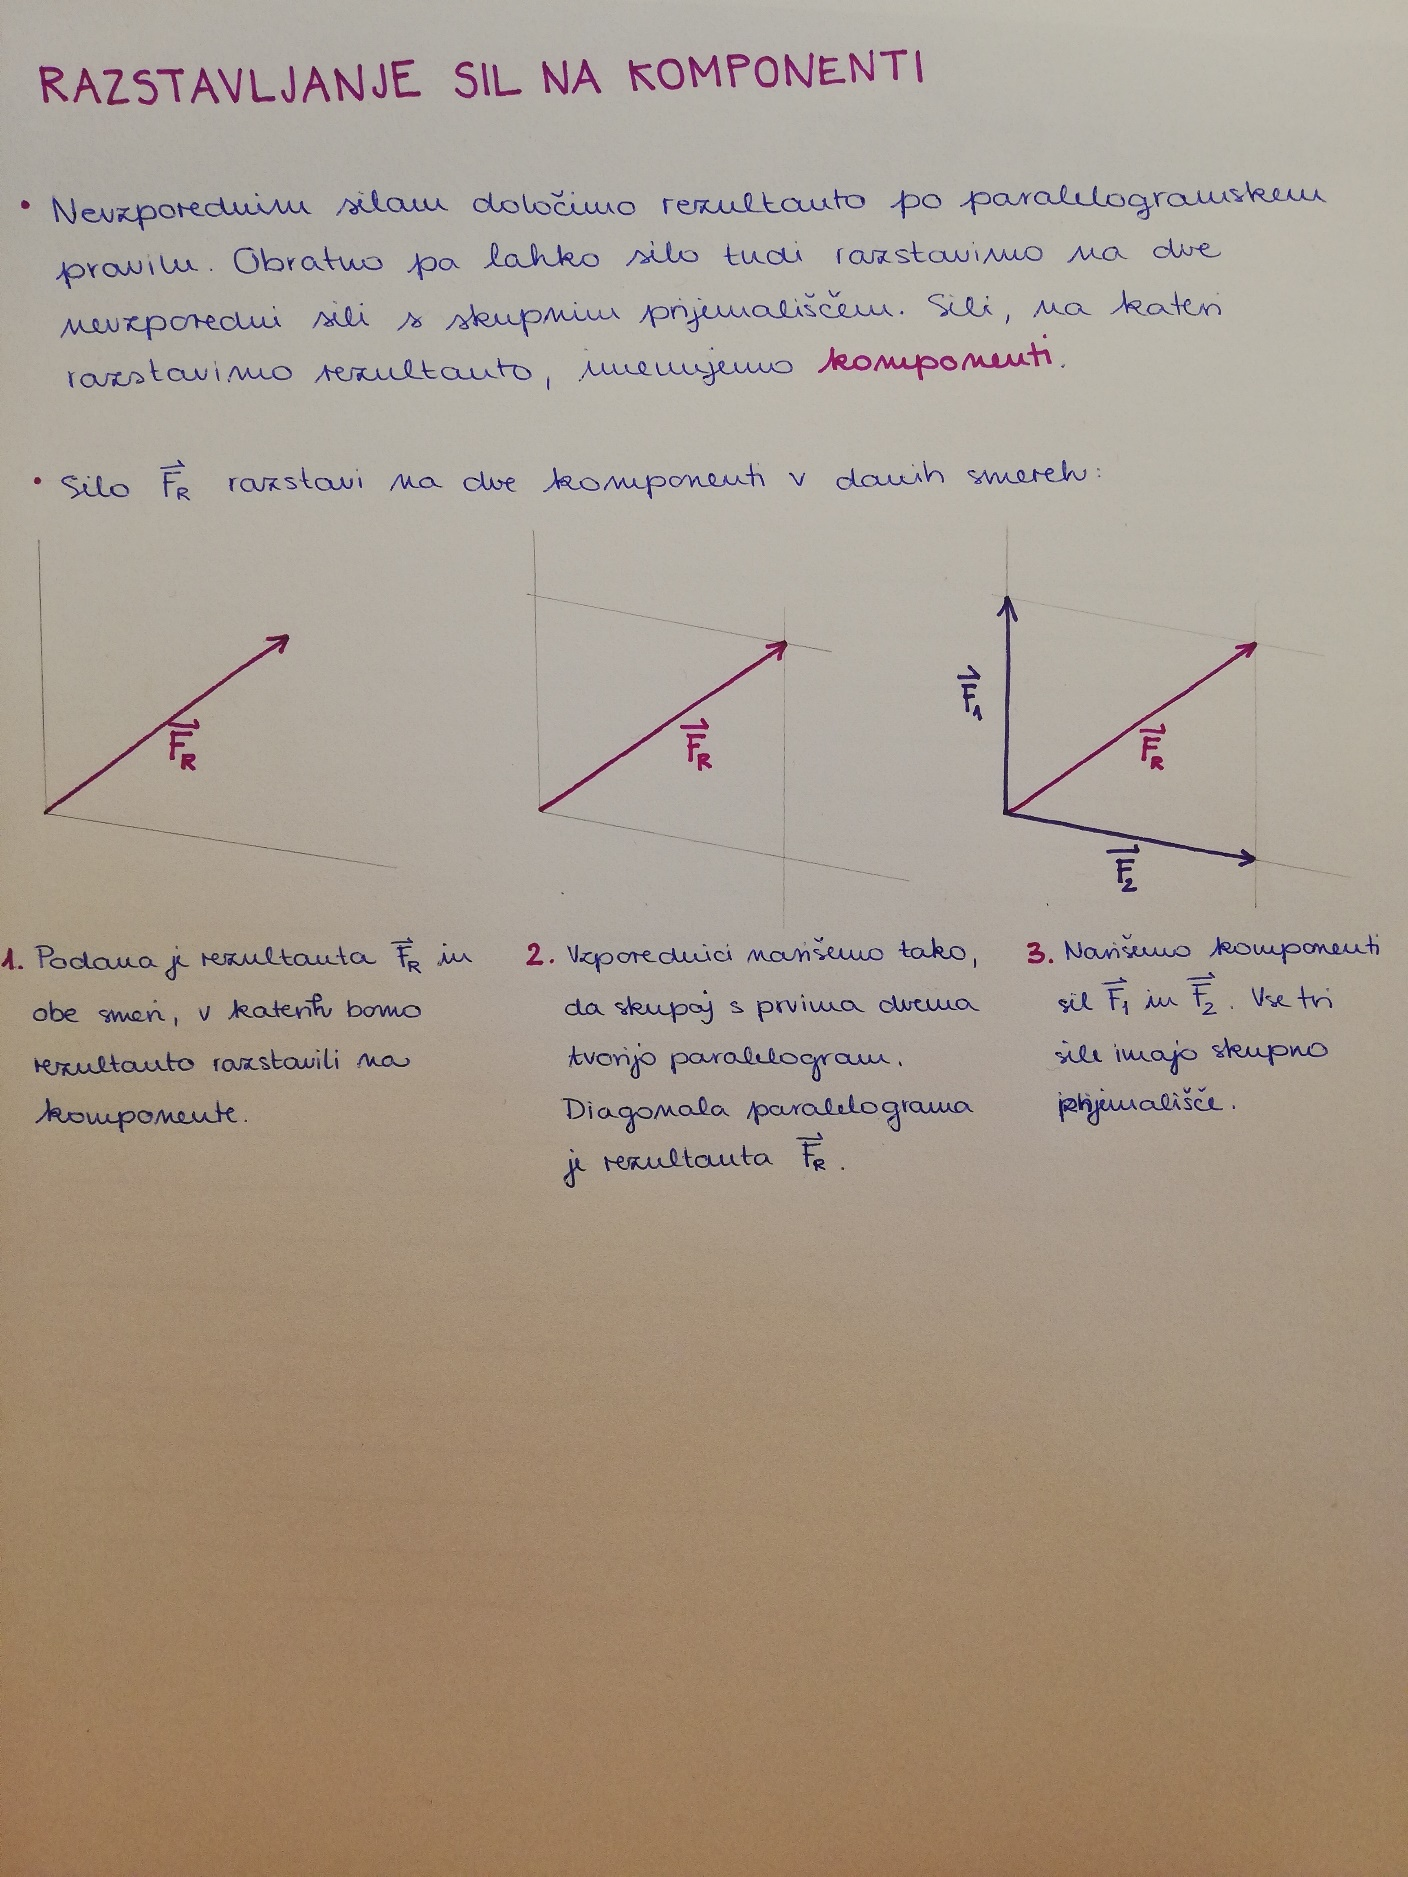 RAZSTAVLJANJE SIL NA KOMPONENTI
• Nevzporednim silam določimo rezultanto po paralelogramskem
pravilu. Obratno pa lahko silo tudi razstavimo na dve
nevzporedni sili s skupnim prijemališčem. Sili, na kateri
razstavimo rezultanto, imenujemo komponenti.
• Silo F⃗R razstavi na dve komponenti v danih smereh:
F⃗R
F⃗R
F⃗1
F⃗R
F⃗2
1. Podana je rezultanta F⃗R in
obe smeri, v katerih bomo
rezultanto razstavili na
komponente.
2. Vzporednici narišemo tako,
da skupaj s prvima dvema
tvorijo paralelogram.
Diagonala paralelograma
je rezultanta F⃗R.
3. Narišemo komponenti
sil F⃗1 in F⃗2. Vse tri
sile imajo skupno
prijemališče.